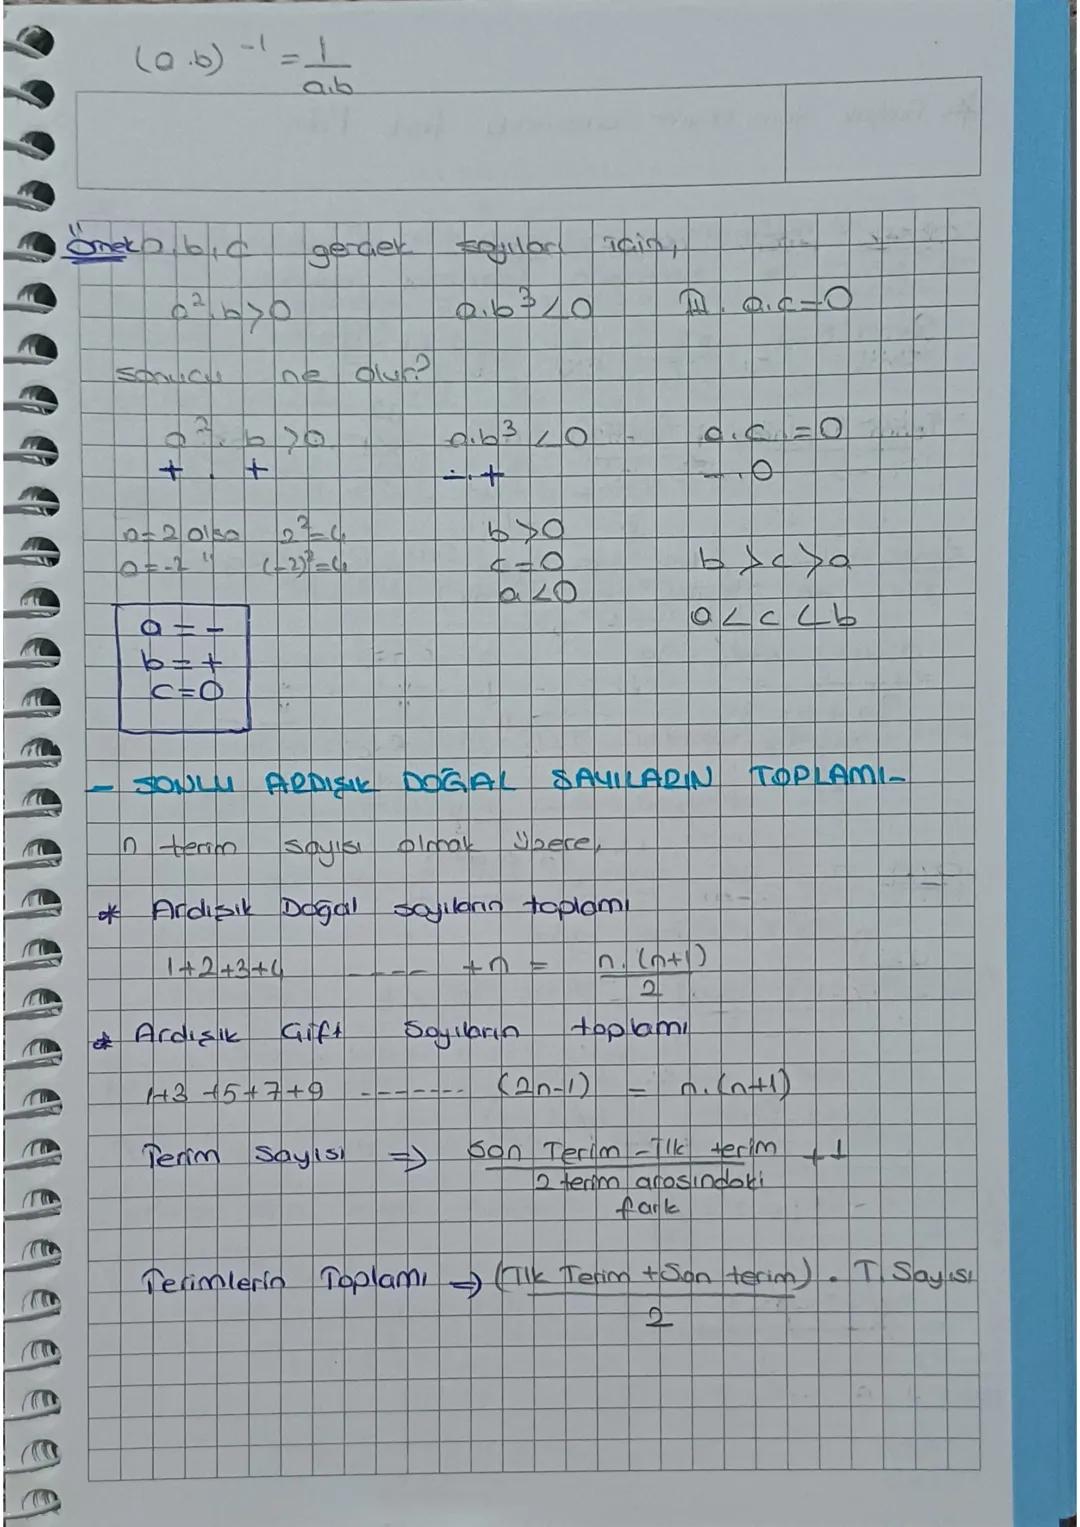 (a.b)⁻¹ = 1/a.b
Örnek a, b, c gerçek sayıları için,
a².b>0 a.b³<0 III. a.c=0
sonucu ne olur?
a².b>0 a.b³<0 a.c=0
+ . + - . + - . 0
a=2 olsa 2²=4 b>0
a=-2 " (-2)²=4 c=0 b>c>a
a<0
a<c<b
a = -
b = +
c=0
- SONLU ARDIŞIK DOĞAL SAYILARIN TOPLAMI-
n terim sayısı olmak üzere,
* Ardışık Doğal sayıların toplamı
1+2+3+4 ---- +n = n.(n+1)/2
* Ardışık Çift Sayıların toplamı
1+3+5+7+9 ------- (2n-1) = n.(n+1)
Terim Sayısı ⇒ Son Terim - İlk terim / 2 terim arasındaki fark +1
Terimlerin Toplamı ⇒ (İlk Terim + Son terim)/2 . T Sayısı